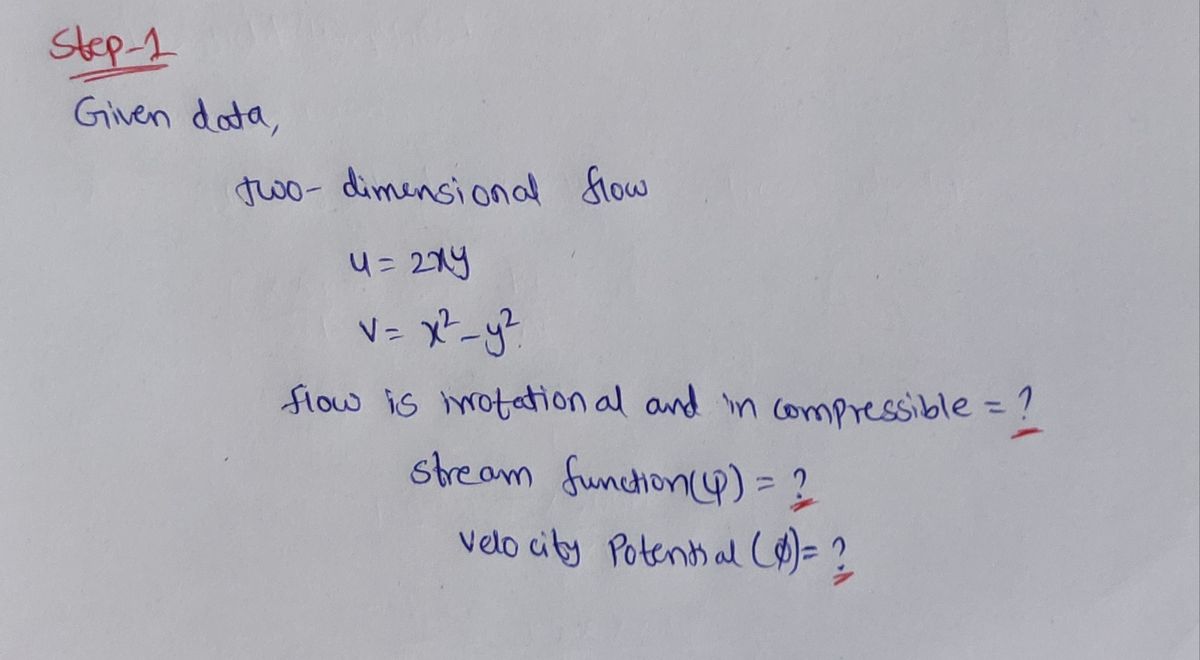 Step-1
Given data,
two-dimensional flow
u = 2xy
v = x² - y².
flow is irrotational and in compressible = ?
stream function(ψ) = ?
velo city Potential (φ) = ?